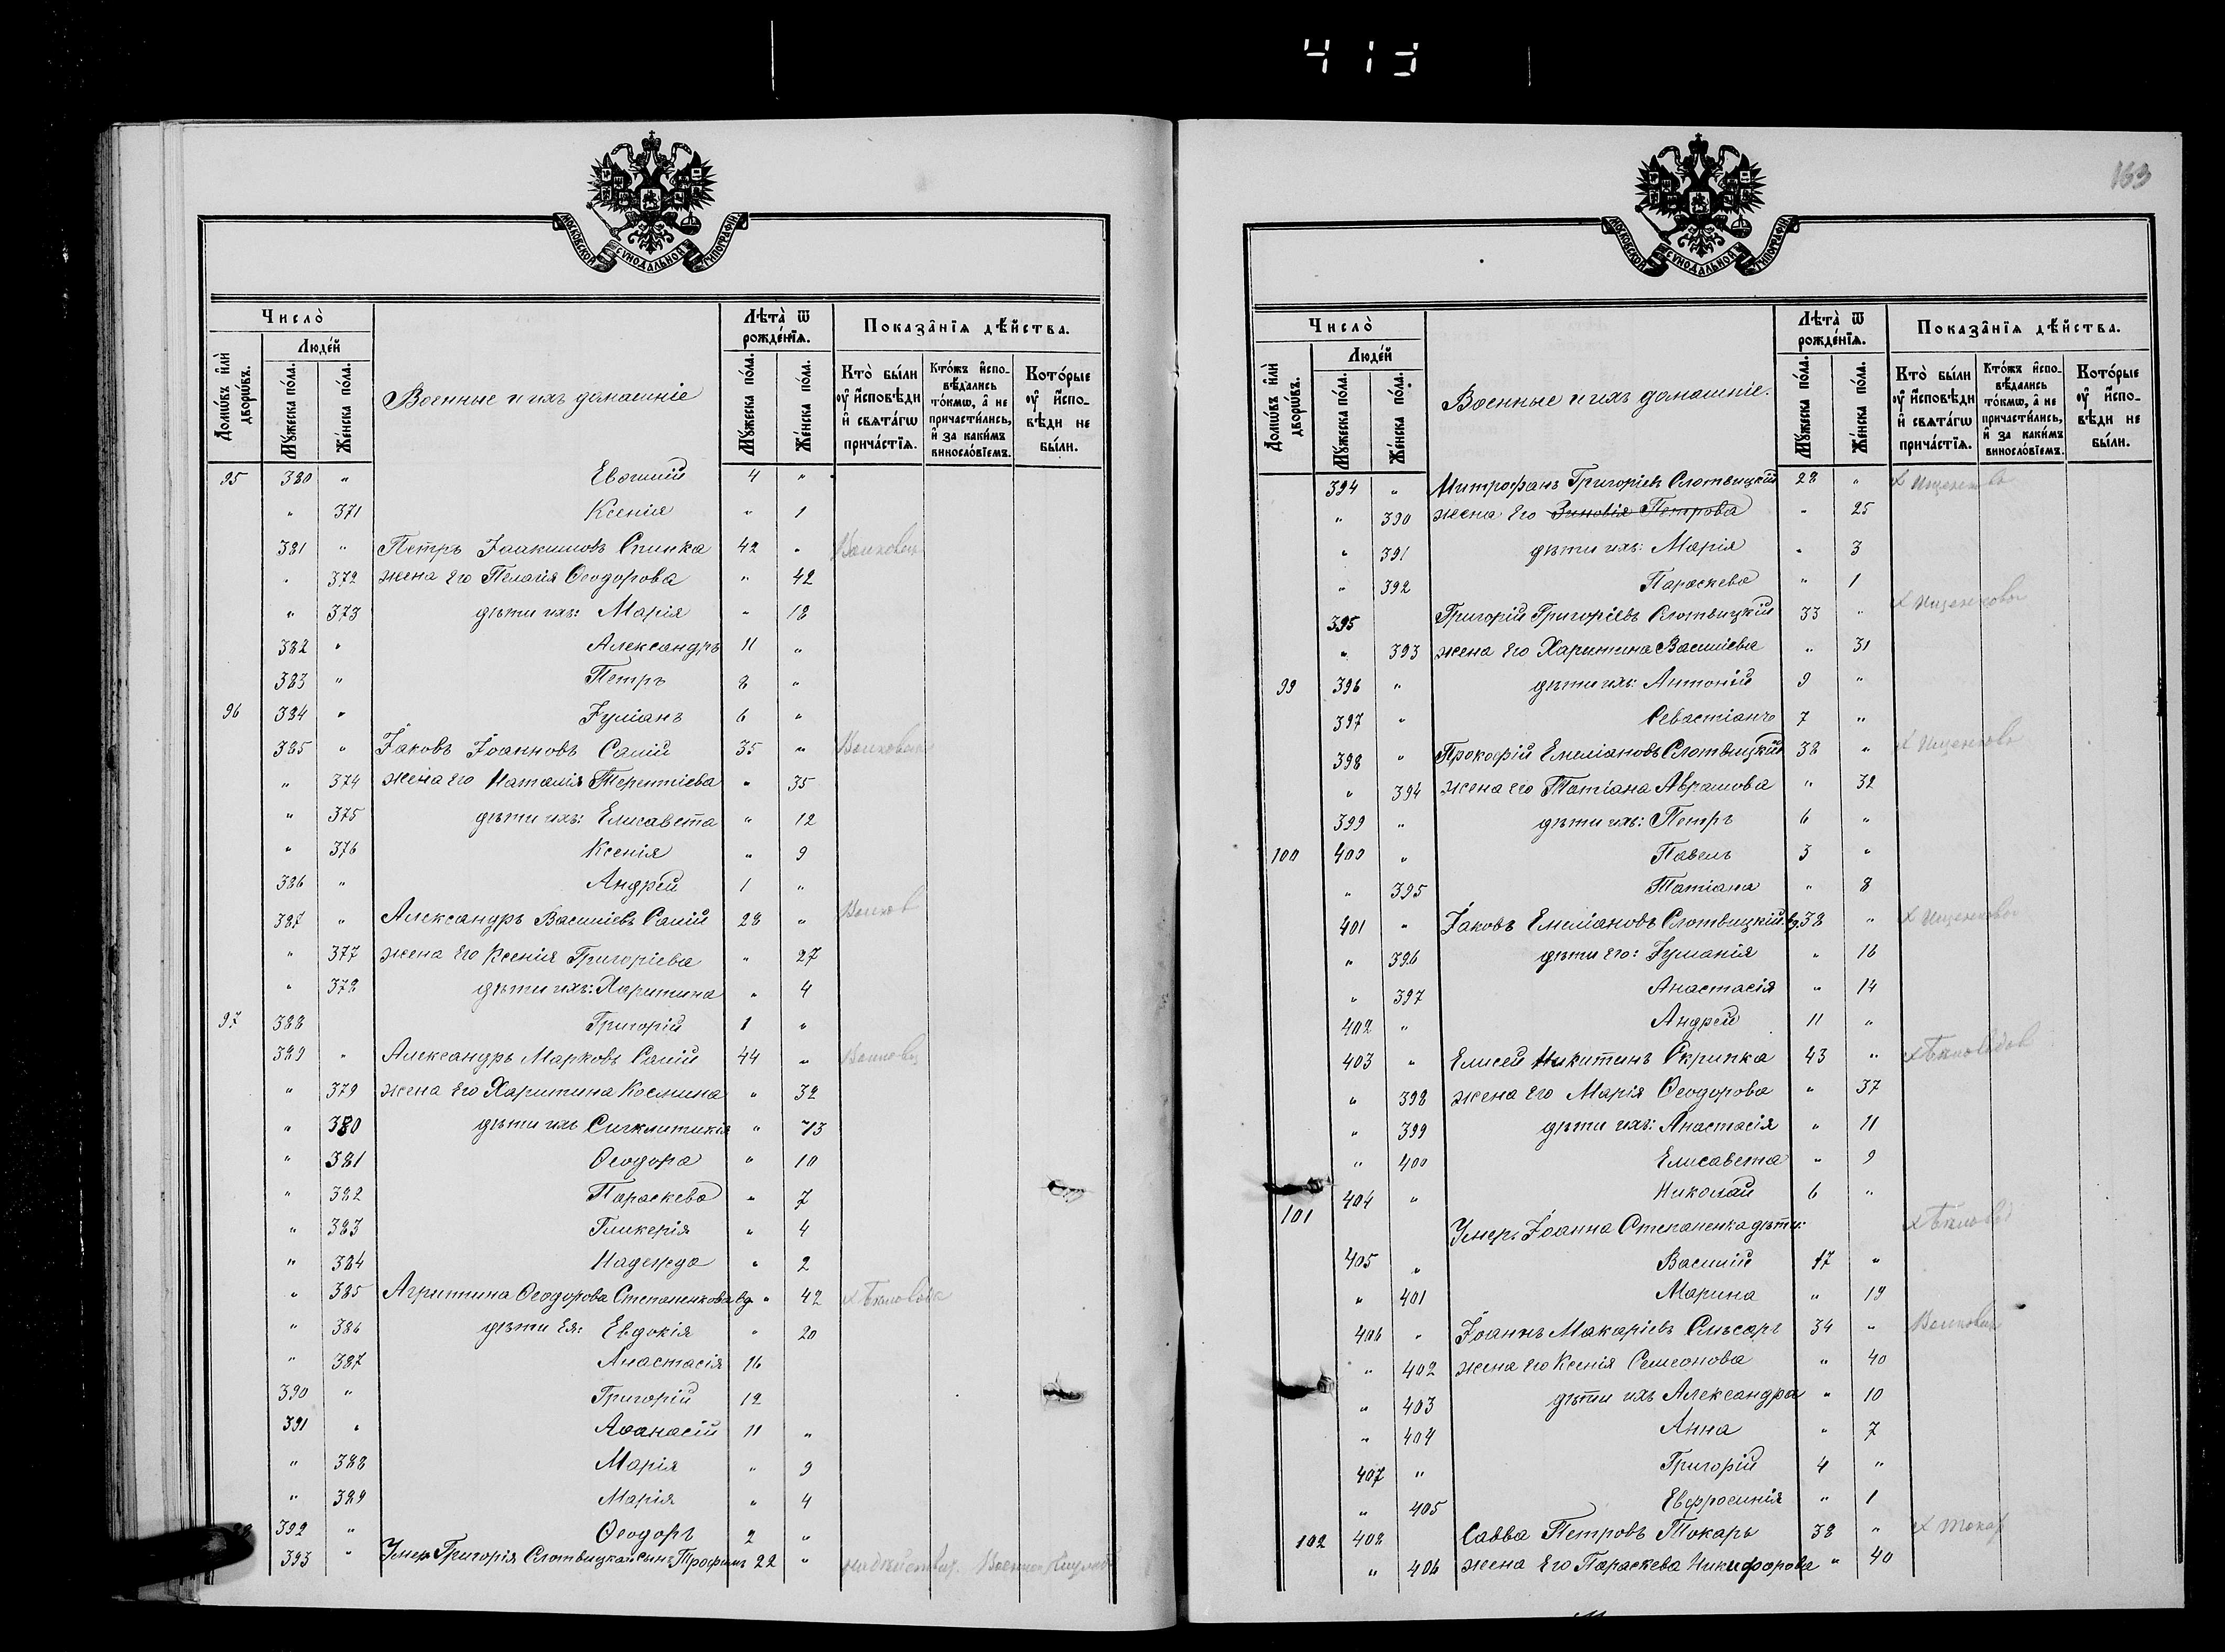 413
МОСКОВСКОЙ СѴНОДАЛЬНОЙ ТИПОГРАФІИ
Число̀
Домѡ́въ и҆лѝ дворѡ́въ.
Люде́й
Мꙋ́жеска по́ла.
Же́нска по́ла.
Военные и ихъ домашніе
Лѣта̀ ѿ рожде́нїѧ.
Мꙋ́жеска по́ла.
Же́нска по́ла.
Показа̑нїѧ дѣ́йства.
Кто̀ бы́ли ᲂу҆ и҆́сповѣди и҆ свѧта́гѡ прича́стїѧ.
Кто́жъ и҆спо-вѣ́дались то́кмѡ, а҆ не причасти́лись, и҆ за каки́мъ винословїемъ.
Кото́рые ᲂу҆ и҆́спо-вѣди не бы́ли.
95 380 " Евѳимій 4 "
" 371 Ксенія " 1
381 " Петръ Іоакимовъ Спинка 42 "
" 372 жена его Пелагія Ѳеодорова " 42
" 373 дѣти ихъ: Марія " 18
382 " Александръ 11 "
383 " Петръ 8 "
96 384 " Іуліанъ 6 "
385 " Іаковъ Іоанновъ Салій 35 "
" 374 жена его Наталія Терентіева " 35
" 375 дѣти ихъ: Елисавета " 12
" 376 Ксенія " 9
386 " Андрей 1 "
387 " Александръ Василіевъ Салій 28 "
" 377 жена его Ксенія Григоріева " 27
" 378 дѣти ихъ: Харитина " 4
97 388 Григорій 1 "
389 " Александръ Марковъ Салій 44 "
" 379 жена его Харитина Космина " 32
" 380 дѣти ихъ Сигклитикія " 13
" 381 Ѳеодора " 10
" 382 Параскева " 7
" 383 Гликерія " 4
" 384 Надежда " 2
" 385 Агриппина Ѳеодорова Степаненкова вд. " 42
" 386 дѣти ея: Евдокія " 20
" 387 Анастасія 16
390 " Григорій 12
391 " Аѳанасій 11 "
" 388 Марія " 9
" 389 Марія " 4
98 392 " Ѳеодоръ 2 "
393 " Умер. Григорія Слотвицкаго сынъ Трофимъ 22 "
163
МОСКОВСКОЙ СѴНОДАЛЬНОЙ ТИПОГРАФІИ
Число̀
Домѡ́въ и҆лѝ дворѡ́въ.
Люде́й
Мꙋ́жеска по́ла.
Же́нска по́ла.
Военные и ихъ домашніе.
Лѣта̀ ѿ рожде́нїѧ.
Мꙋ́жеска по́ла.
Же́нска по́ла.
Показа̑нїѧ дѣ́йства.
Кто̀ бы́ли ᲂу҆ и҆́сповѣди и҆ свѧта́гѡ прича́стїѧ.
Кто́жъ и҆спо-вѣ́дались то́кмѡ, а҆ не причасти́лись, и҆ за каки́мъ винословїемъ.
Кото́рые ᲂу҆ и҆́спо-вѣди не бы́ли.
394 " Митрофанъ Григоріевъ Слотвицкій 28 "
" 390 жена его Зиновія Петрова " 25
" 391 дѣти ихъ: Марія " 3
" 392 Параскева " 1
395 Григорій Григоріевъ Слотвицкій 33 "
" 393 жена его Харитина Василіева " 31
99 396 " дѣти ихъ: Антоній 9 "
397 " Севастіанъ 7 "
398 " Прокофій Емеліановъ Слотвицкій 38 "
" 394 жена его Татіана Аврамова " 32
399 " дѣти ихъ: Петръ 6 "
100 400 " Павелъ 3 "
" 395 Татіана " 8
401 " Іаковъ Емеліановъ Слотвицкій вд. 38 "
" 396 дѣти его: Іуліанія " 16
" 397 Анастасія " 14
402 " Андрей 11 "
403 " Елисей Никитинъ Скрипка 43 "
" 398 жена его Марія Ѳеодорова " 37
" 399 дѣти ихъ: Анастасія " 11
" 400 Елисавета " 9
404 " Николай 6 "
101 Умер. Іоанна Степаненка дѣти:
405 " Василій 17 "
" 401 Марина " 19
406 " Іоаннъ Макаріевъ Слѣсарь 34 "
" 402 жена его Ксенія Семеонова " 40
" 403 дѣти ихъ Александра " 10
" 404 Анна " 7
407 " Григорій 4 "
" 405 Евфросинія " 1
102 408 Савва Петровъ Токарь 38 " х Токар
" 406 жена его Параскева Никифорова " 40